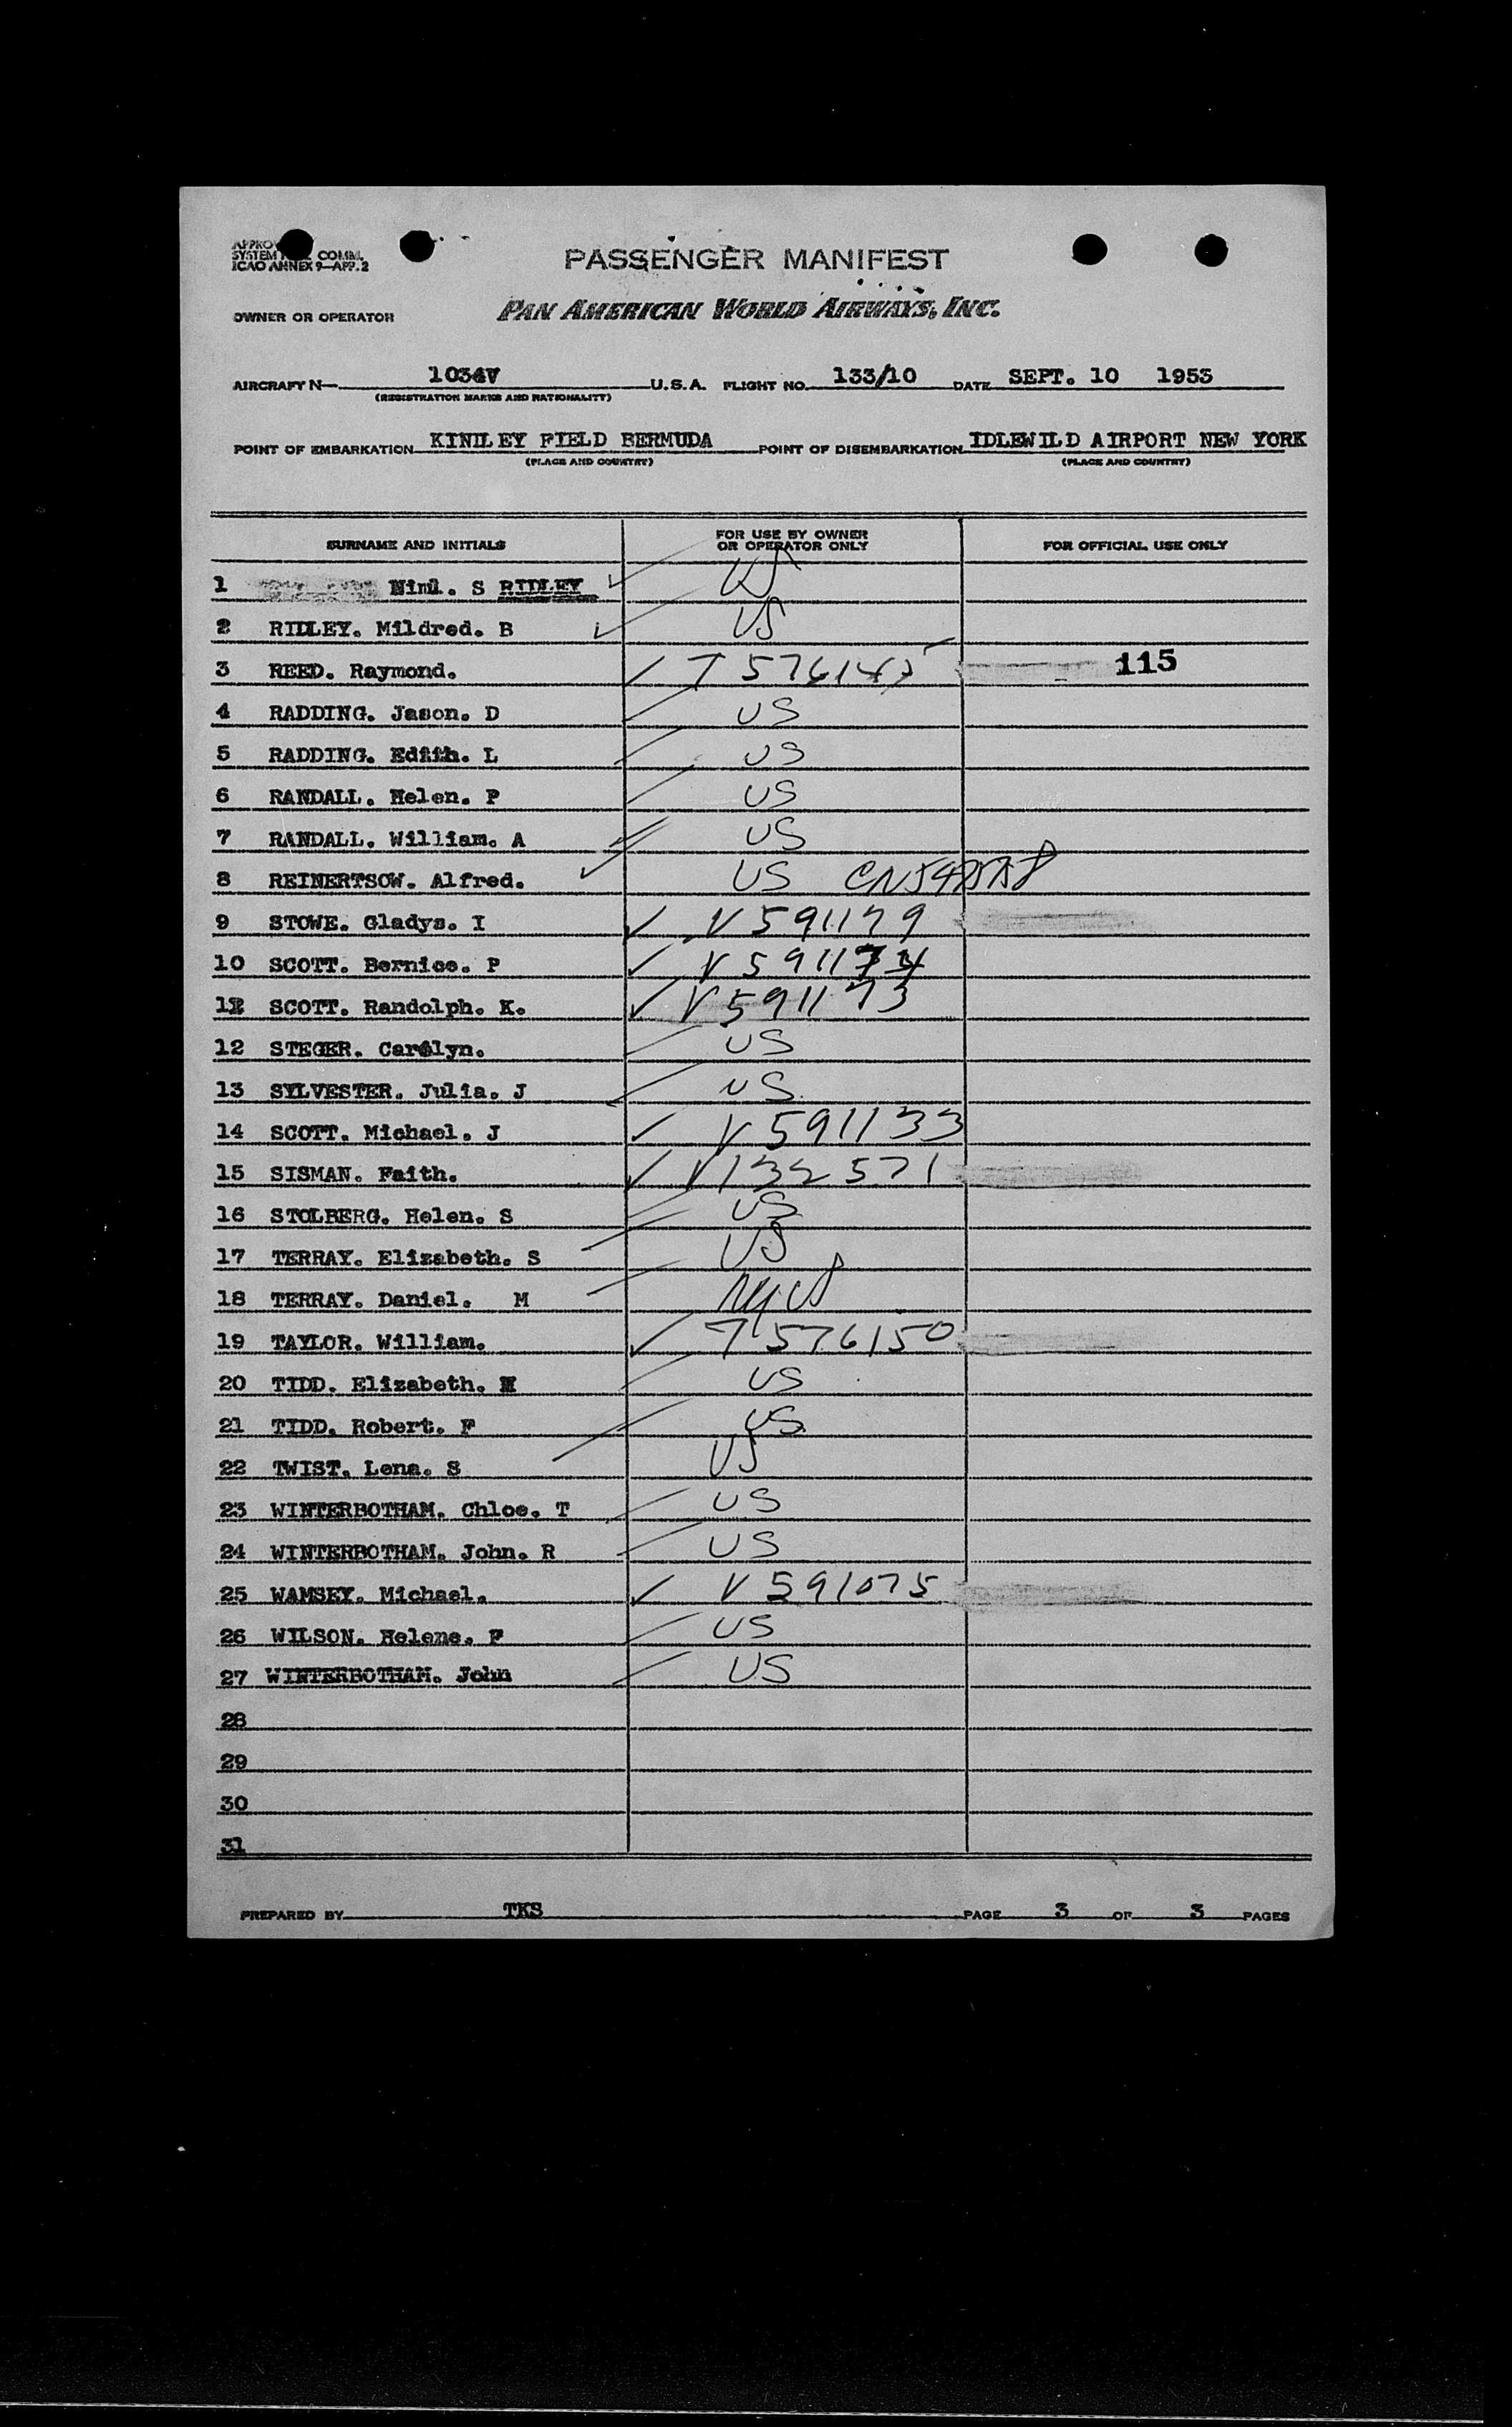 SYSTEM COMM.
ICAO ANNEX 9—APP. 2
PASSENGER MANIFEST
OWNER OR OPERATOR PAN AMERICAN WORLD AIRWAYS, INC.
AIRCRAFT N— 1034V U.S.A. FLIGHT NO. 133/10 DATE SEPT. 10 1953
(REGISTRATION MARKS AND NATIONALITY)
POINT OF EMBARKATION KINDLEY FIELD BERMUDA POINT OF DISEMBARKATION IDLEWILD AIRPORT NEW YORK
(PLACE AND COUNTRY) (PLACE AND COUNTRY)
SURNAME AND INITIALS FOR USE BY OWNER OR OPERATOR ONLY FOR OFFICIAL USE ONLY
1 S RIDLEY US
2 RIDLEY. Mildred. B US
3 REED. Raymond. T 576145 115
4 RADDING. Jason. D US
5 RADDING. Edith. L US
6 RANDALL. Helen. P US
7 RANDALL. William. A US
8 REINERTSOW. Alfred. US
9 STOWE. Gladys. I V 591179
10 SCOTT. Bernice. P V 591174
11 SCOTT. Randolph. K. V 591173
12 STEGER. Carolyn. US
13 SYLVESTER. Julia. J US
14 SCOTT. Michael. J V 591133
15 SISMAN. Faith. V132571
16 STOLBERG. Helen. S US
17 TERRAY. Elizabeth. S US
18 TERRAY. Daniel. M US
19 TAYLOR. William. T 576150
20 TIDD. Elizabeth. H US
21 TIDD. Robert. F US
22 TWIST. Lena. S US
23 WINTERBOTHAM. Chloe. T US
24 WINTERBOTHAM. John. R US
25 WAMSEY. Michael. V 591075
26 WILSON. Helene. F US
27 WINTERBOTHAM. John US
28
29
30
31
PREPARED BY TKS PAGE 3 OF 3 PAGES